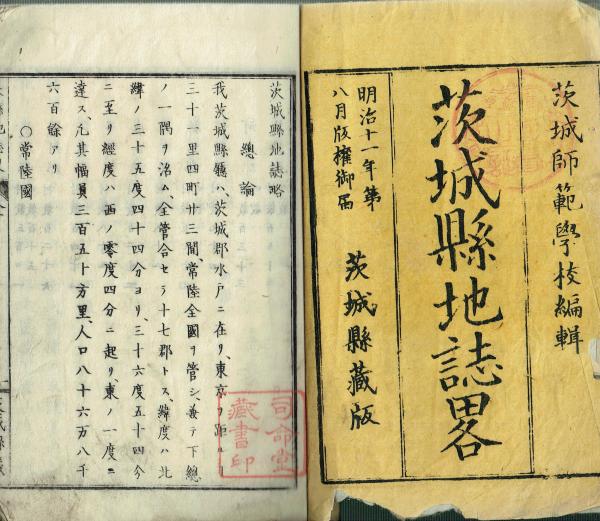 茨城師範學校編輯
茨城縣地誌畧
明治十一年第
八月版權御届
茨城縣藏版
茨城縣地誌略
總論
我茨城縣廳ハ、茨城郡水戸ニ在リ、東京ヲ距ル
三十一里四町廿三間、常陸全國ヲ管シ、兼テ下總
ノ一隅ヲ治ム、全管合セテ十七郡トス、緯度ハ北
緯ノ三十五度四十四分ヨリ、三十六度五十四分
ニ至リ、經度ハ西ノ零度四分ニ起リ、東ノ一度ニ
達ス、凢其幅員三百五十方里、人口八十六万八千
六百餘アリ
○常陸國
司命堂
藏書印